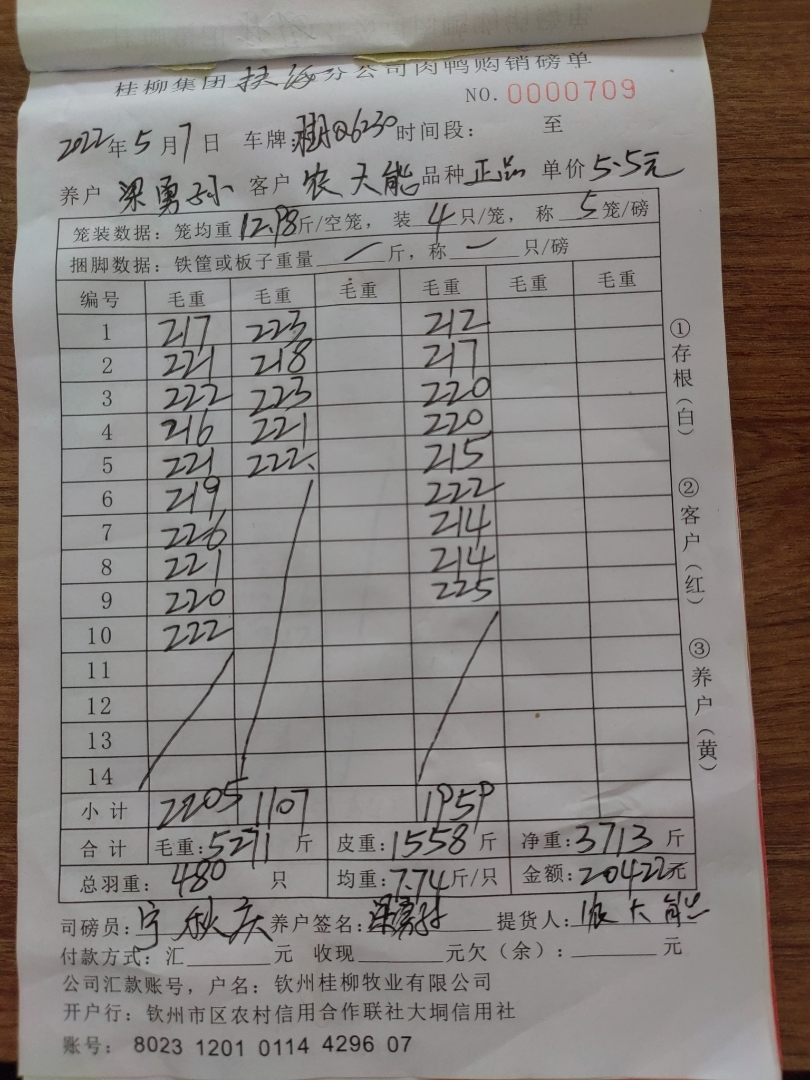 桂柳集团扶海分公司肉鸭购销磅单
NO. 0000709
2022年5月7日 车牌:桂AQ6230 时间段: 至
养户 梁勇 客户 农大能 品种 正品 单价 5.5元
笼装数据: 笼均重 12.98 斤/空笼, 装 4 只/笼, 称 5 笼/磅
捆脚数据: 铁筐或板子重量 / 斤, 称 一 只/磅
编号 毛重 毛重 毛重 毛重 毛重 毛重
1 217 223 212
2 221 218 217
3 222 223 220
4 216 221 220
5 221 222 215
6 219 222
7 226 214
8 221 214
9 220 225
10 222
11
12
13
14
小计 2205 1107 1959
合计 毛重:5271 斤 皮重:1558 斤 净重:3713 斤
总羽重: 480 只 均重:7.74斤/只 金额:20422元
司磅员: 宁秋庆 养户签名: 梁勇 提货人: 农大能
付款方式: 汇 元 收现 元欠(余): 元
公司汇款账号, 户名: 钦州桂柳牧业有限公司
开户行: 钦州市区农村信用合作联社大垌信用社
账号: 8023 1201 0114 4296 07
①存根(白)
②客户(红)
③养户(黄)